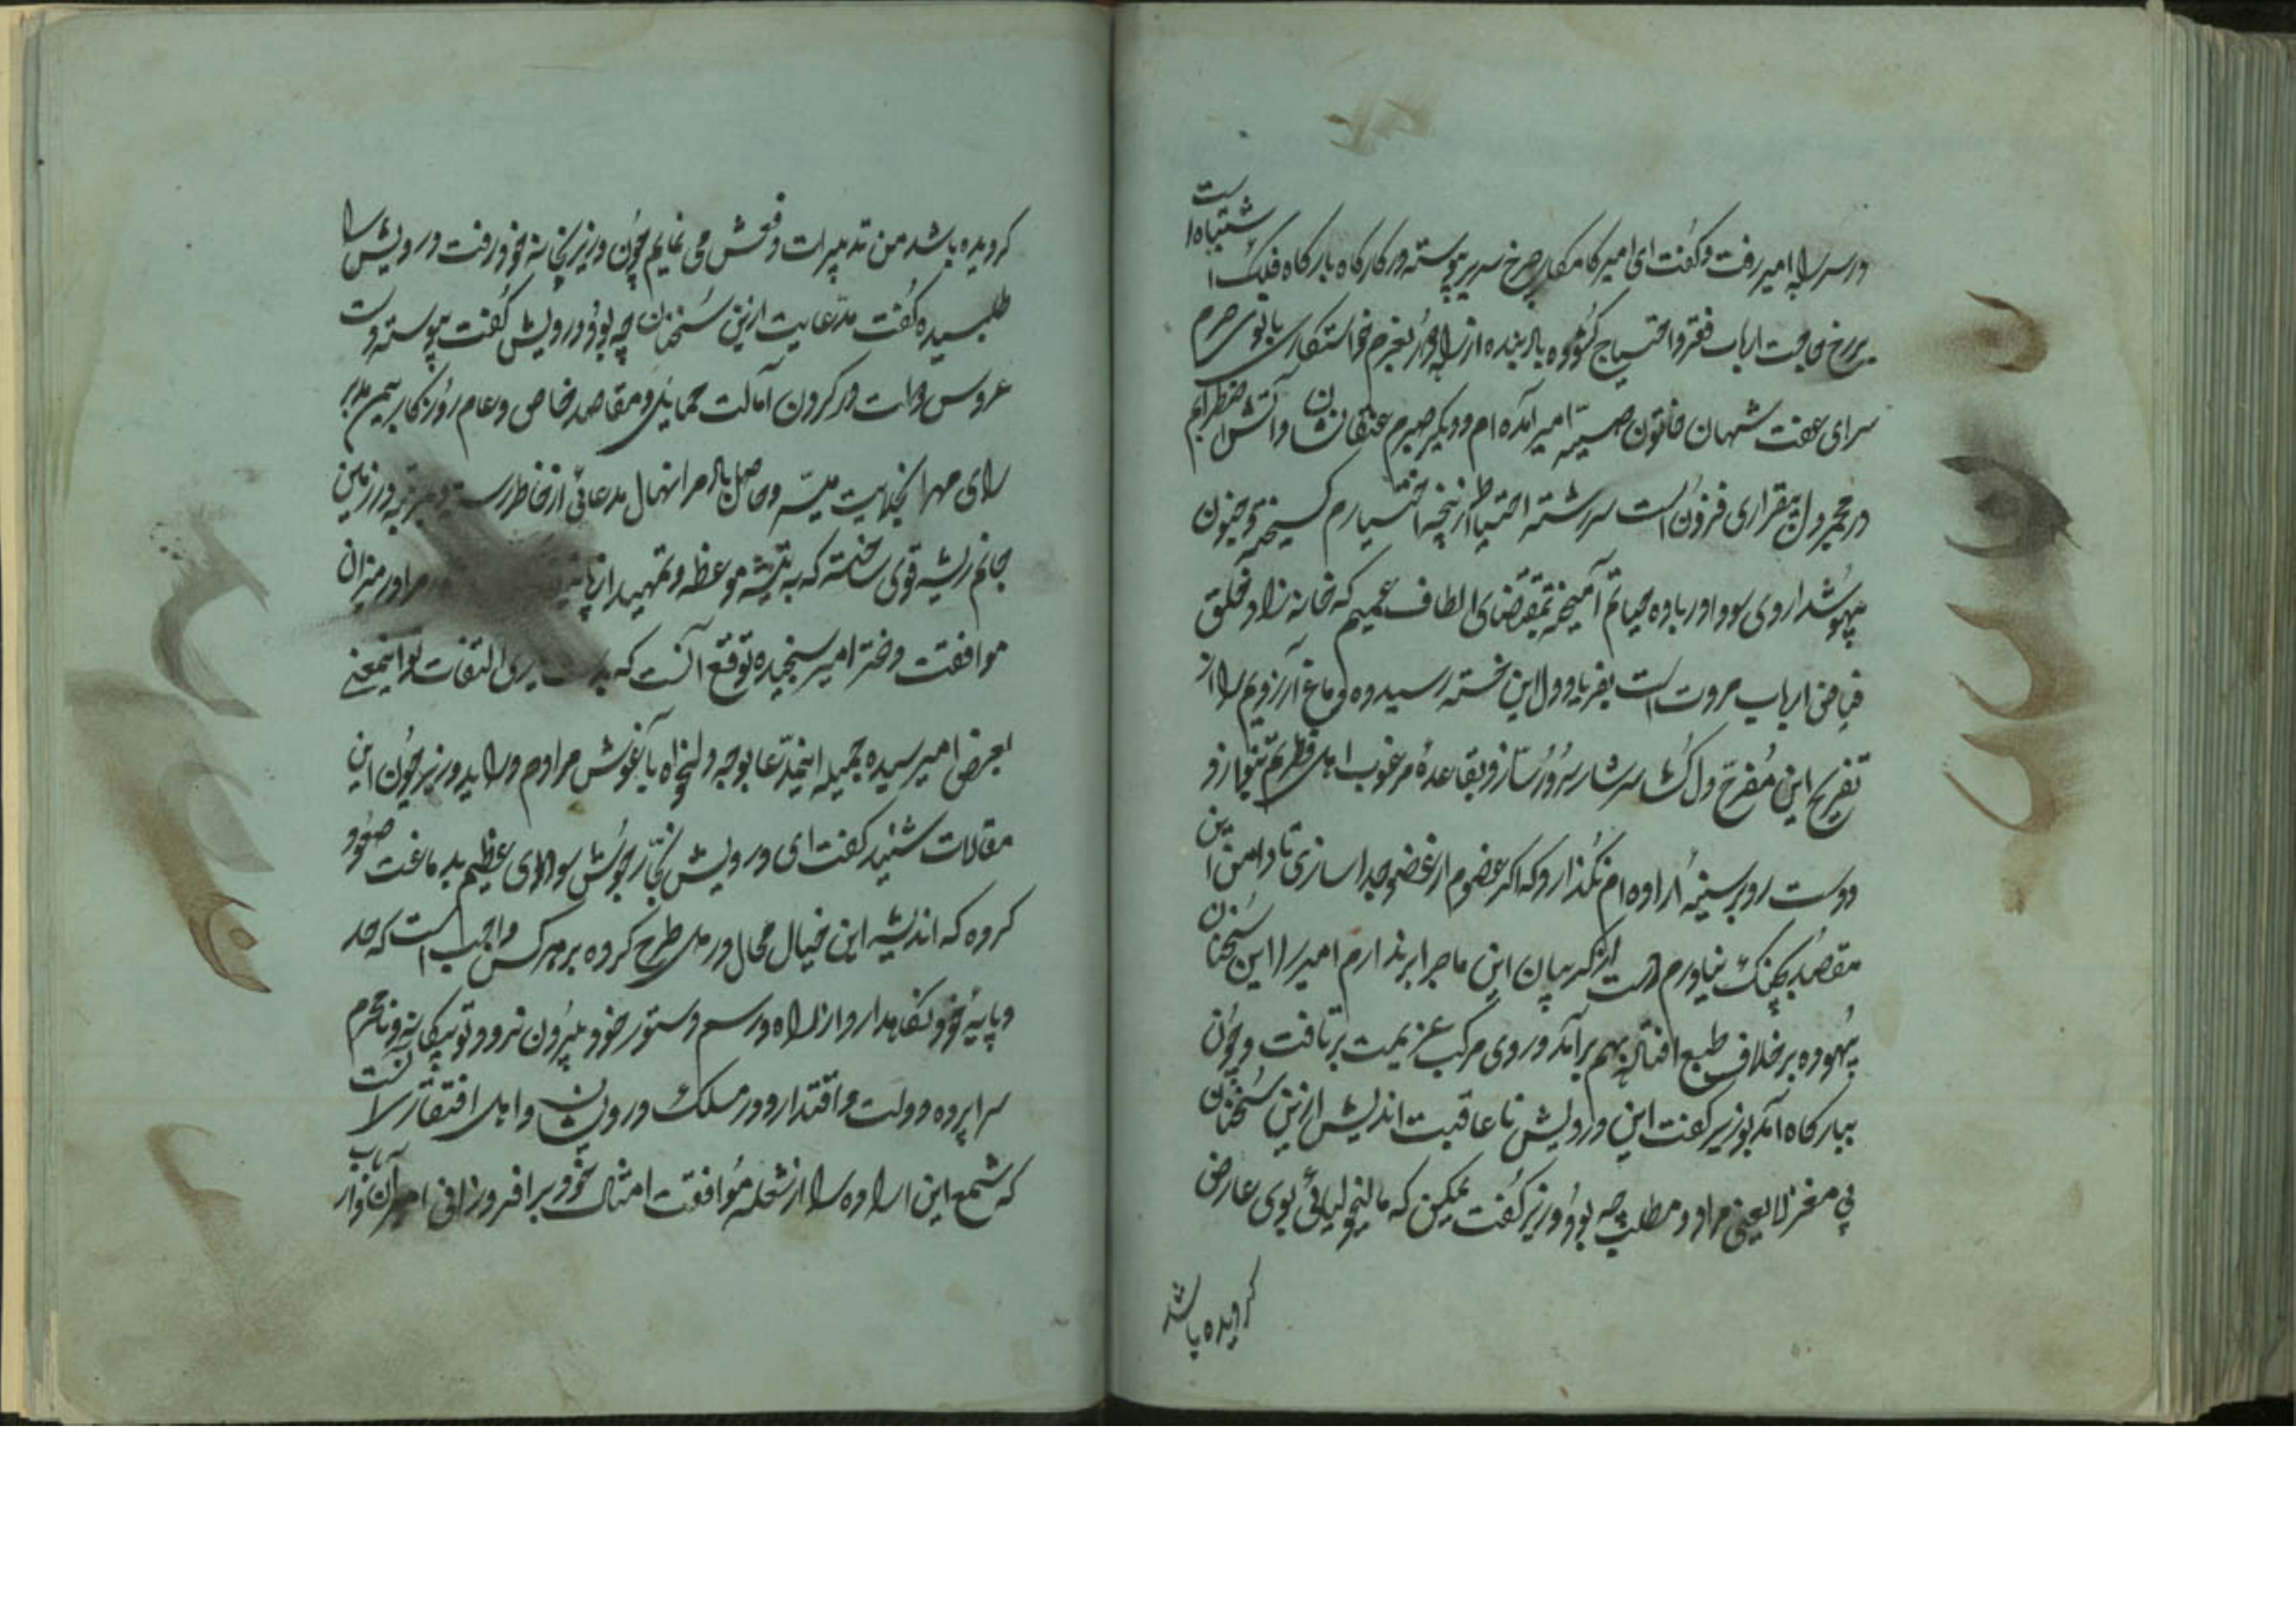 در سرای امیر رفت و گفت ای امیر کامکار چرخ سریر پیوسته در کارگاه بارگاه فلک اشتباهت
بر رخ حاجت ارباب فقر و احتیاج گشوده باد بنده از راه دور بعزم خواستگاری بانوی حرم
سرای عفت شبهان خاتون صبیه امیر آمده‌ام و دیگر صبرم عنقا نشان و آتش اضطرابم
در مجمر دل بیقراری فزون است سر رشته احتیاط از پنجه اختیارم گسیخته و جنون
بیهوشداروی سودا در باده حیاتم آمیخته بمقتضای الطاف عمیم که خانه زاد خلق
فیاض ارباب مروت است بفریاد دل این خسته رسیده دماغ آرزویم را از
تفریح این مفرح دل گشا سرشار سرور ساز و بقاعده مرغوب اهل
دوست رد بر سینه اراده‌ام نگذار و که اگر عضوم از عضو جدا سازی تا دامن این
مقصد بچنگ نیاورم دست از گریبان این ماجرا برندارم امیر را این سخنان
بیهوده بر خلاف طبع افتاده بهم برآمد و روی مرکب عزیمت برتافت و چون
ببارگاه آمد بوزیر گفت این درویش ناعاقبت اندیش ازین سخنان
بی مغز لایعنی مراد و مطلب چه بود وزیر گفت یمکن که مالیخولیائی بوی عارض
گردیده باشد
گردیده باشد من تدبیرات دفعش می نمایم چون وزیر بخانه خود رفت درویش را
طلبیده گفت مدعایت ازین سخنان چه بود درویش گفت پیوسته دست
عروس دولت در گردن آمالت حمایل و مقاصد خاص و عام روزگار بیمن تدبیر
رای مهر انجلایت میسر و حاصل باد مرا نهال مدعائی از خاطر رسته و در زمین
جانم ریشه قوی ساخته که به تیشه موعظه و تمهید از پا مرا در میزان
موافقت دختر امیر سنجیده توقع آنست که التفات تو اینمعنی
بعرض امیر رسیده جمیله اینمدعا بوجه دلخواه بآغوش مرادم درآید وزیر چون این
مقالات شنید گفت ای درویش نجار جوشش سودای عظیم بدماغت صعود
کرده که اندیشه این خیال محال در دل طرح کرده بر هر کس واجب است که حد
و پایه خود نگاهدارد و از راه و رسم دستور خود بیرون نرود تو بیگانه و نامحرم
سراپرده دولت و اقتدار و در مسلک درویشان و اهل افتقار است
که شمع این اراده را از شعله موافقت امثال خود برافروزانی امیران